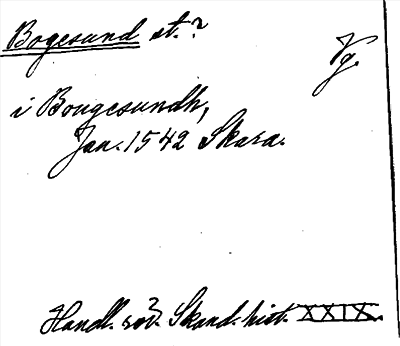 Bogesund st.?
Vg.
i Bougesundh,
Jan. 1542 Skara.
Handl. rör. Skand. hist. XXIX.